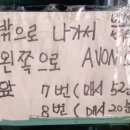 밖으로 나가서
왼쪽으로 AVON
앞 7번 (매시 52분
8번 (매시 20분